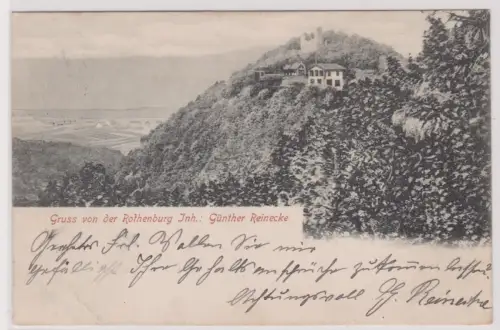 Gruss von der Rothenburg Inh.: Günther Reinecke
Geehrtes Frl. Wollen Sie mir
gefälligst Ihre Gehaltsansprüche zukommen lassen.
Achtungsvoll G. Reinecke